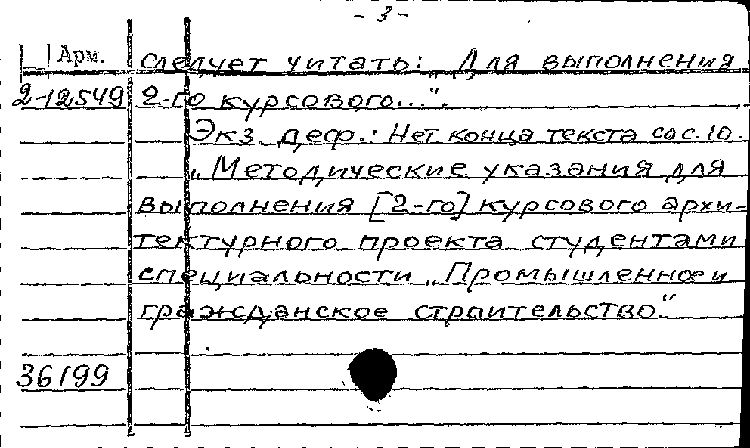 - 3 -
Арм. следует читать: „Для выполнения
2-12549 2-го курсового...".
Экз. деф.: Нет конца текста со с. 10.
„Методические указания для
выполнения [2-го] курсового архи-
тектурного проекта студентами
специальности „Промышленное и
гражданское строительство."
36199